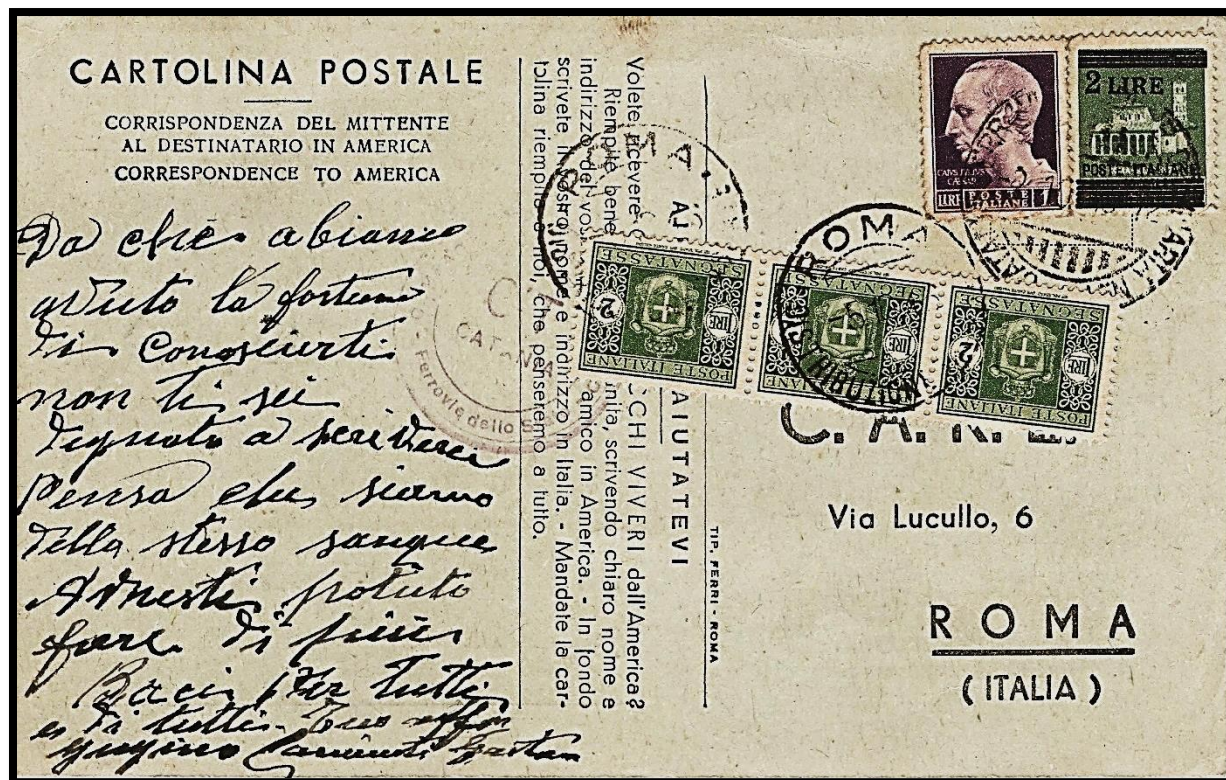 CARTOLINA POSTALE
CORRISPONDENZA DEL MITTENTE
AL DESTINATARIO IN AMERICA
CORRESPONDENCE TO AMERICA
Da che abiamo
avuto la fortuna
di conoscierti
non ti sei
degnato a scriverci
Pensa che siamo
della stesso sangue
Avresti potuto
fare di piu
Baci per tutti
e di tutti. Tuo
AIUTATEVI
Volete ricevere CCHI VIVERI dall'America?
Riempite bene unita, scrivendo chiaro nome e
indirizzo del vos amico in America. - In fondo
scrivete il vostro nome e indirizzo in Italia. - Mandate la car-
tolina riempita a noi, che penseremo a tutto.
TIP. FERRI - ROMA
CATANIA
Ferrovie dello
ROMA
ROMA
DISTRIBUZIONE
CAIVS IVLIVS
CAESAR
LIRE POSTE ITALIANE 1
2 LIRE
POSTE ITALIANE
SEGNATASSE
2 LIRE
POSTE ITALIANE
SEGNATASSE
LIRE
POSTE ITALIANE
SEGNATASSE
2 LIRE
POSTE ITALIANE
C. A. R. E.
Via Lucullo, 6
ROMA
(ITALIA)